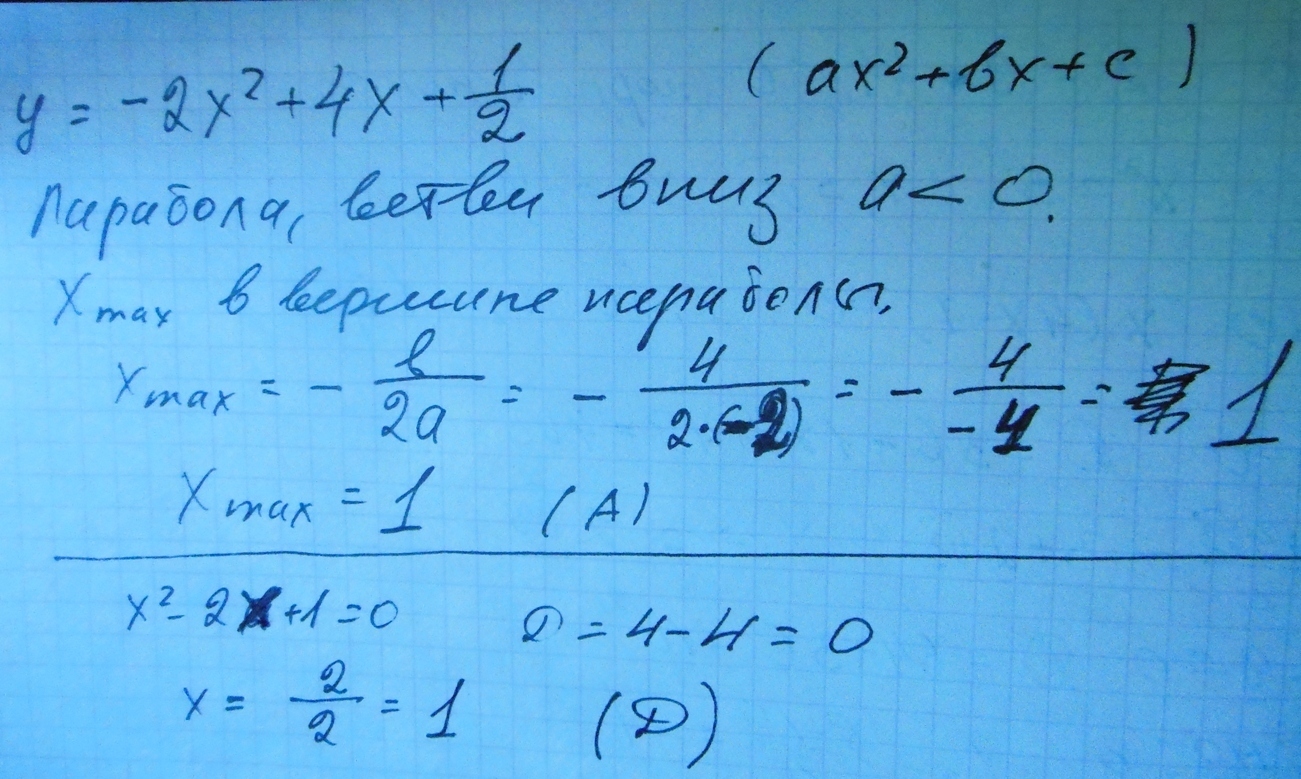 y = -2x² + 4x + 1/2 (ax² + вx + c)
Парабола, ветви вниз a < 0.
X max в вершине параболы.
X max = - в/2a = - 4/2·(-2) = - 4/-4 = 1
X max = 1 (A)
x² - 2x + 1 = 0 D = 4 - 4 = 0
x = 2/2 = 1 (D)